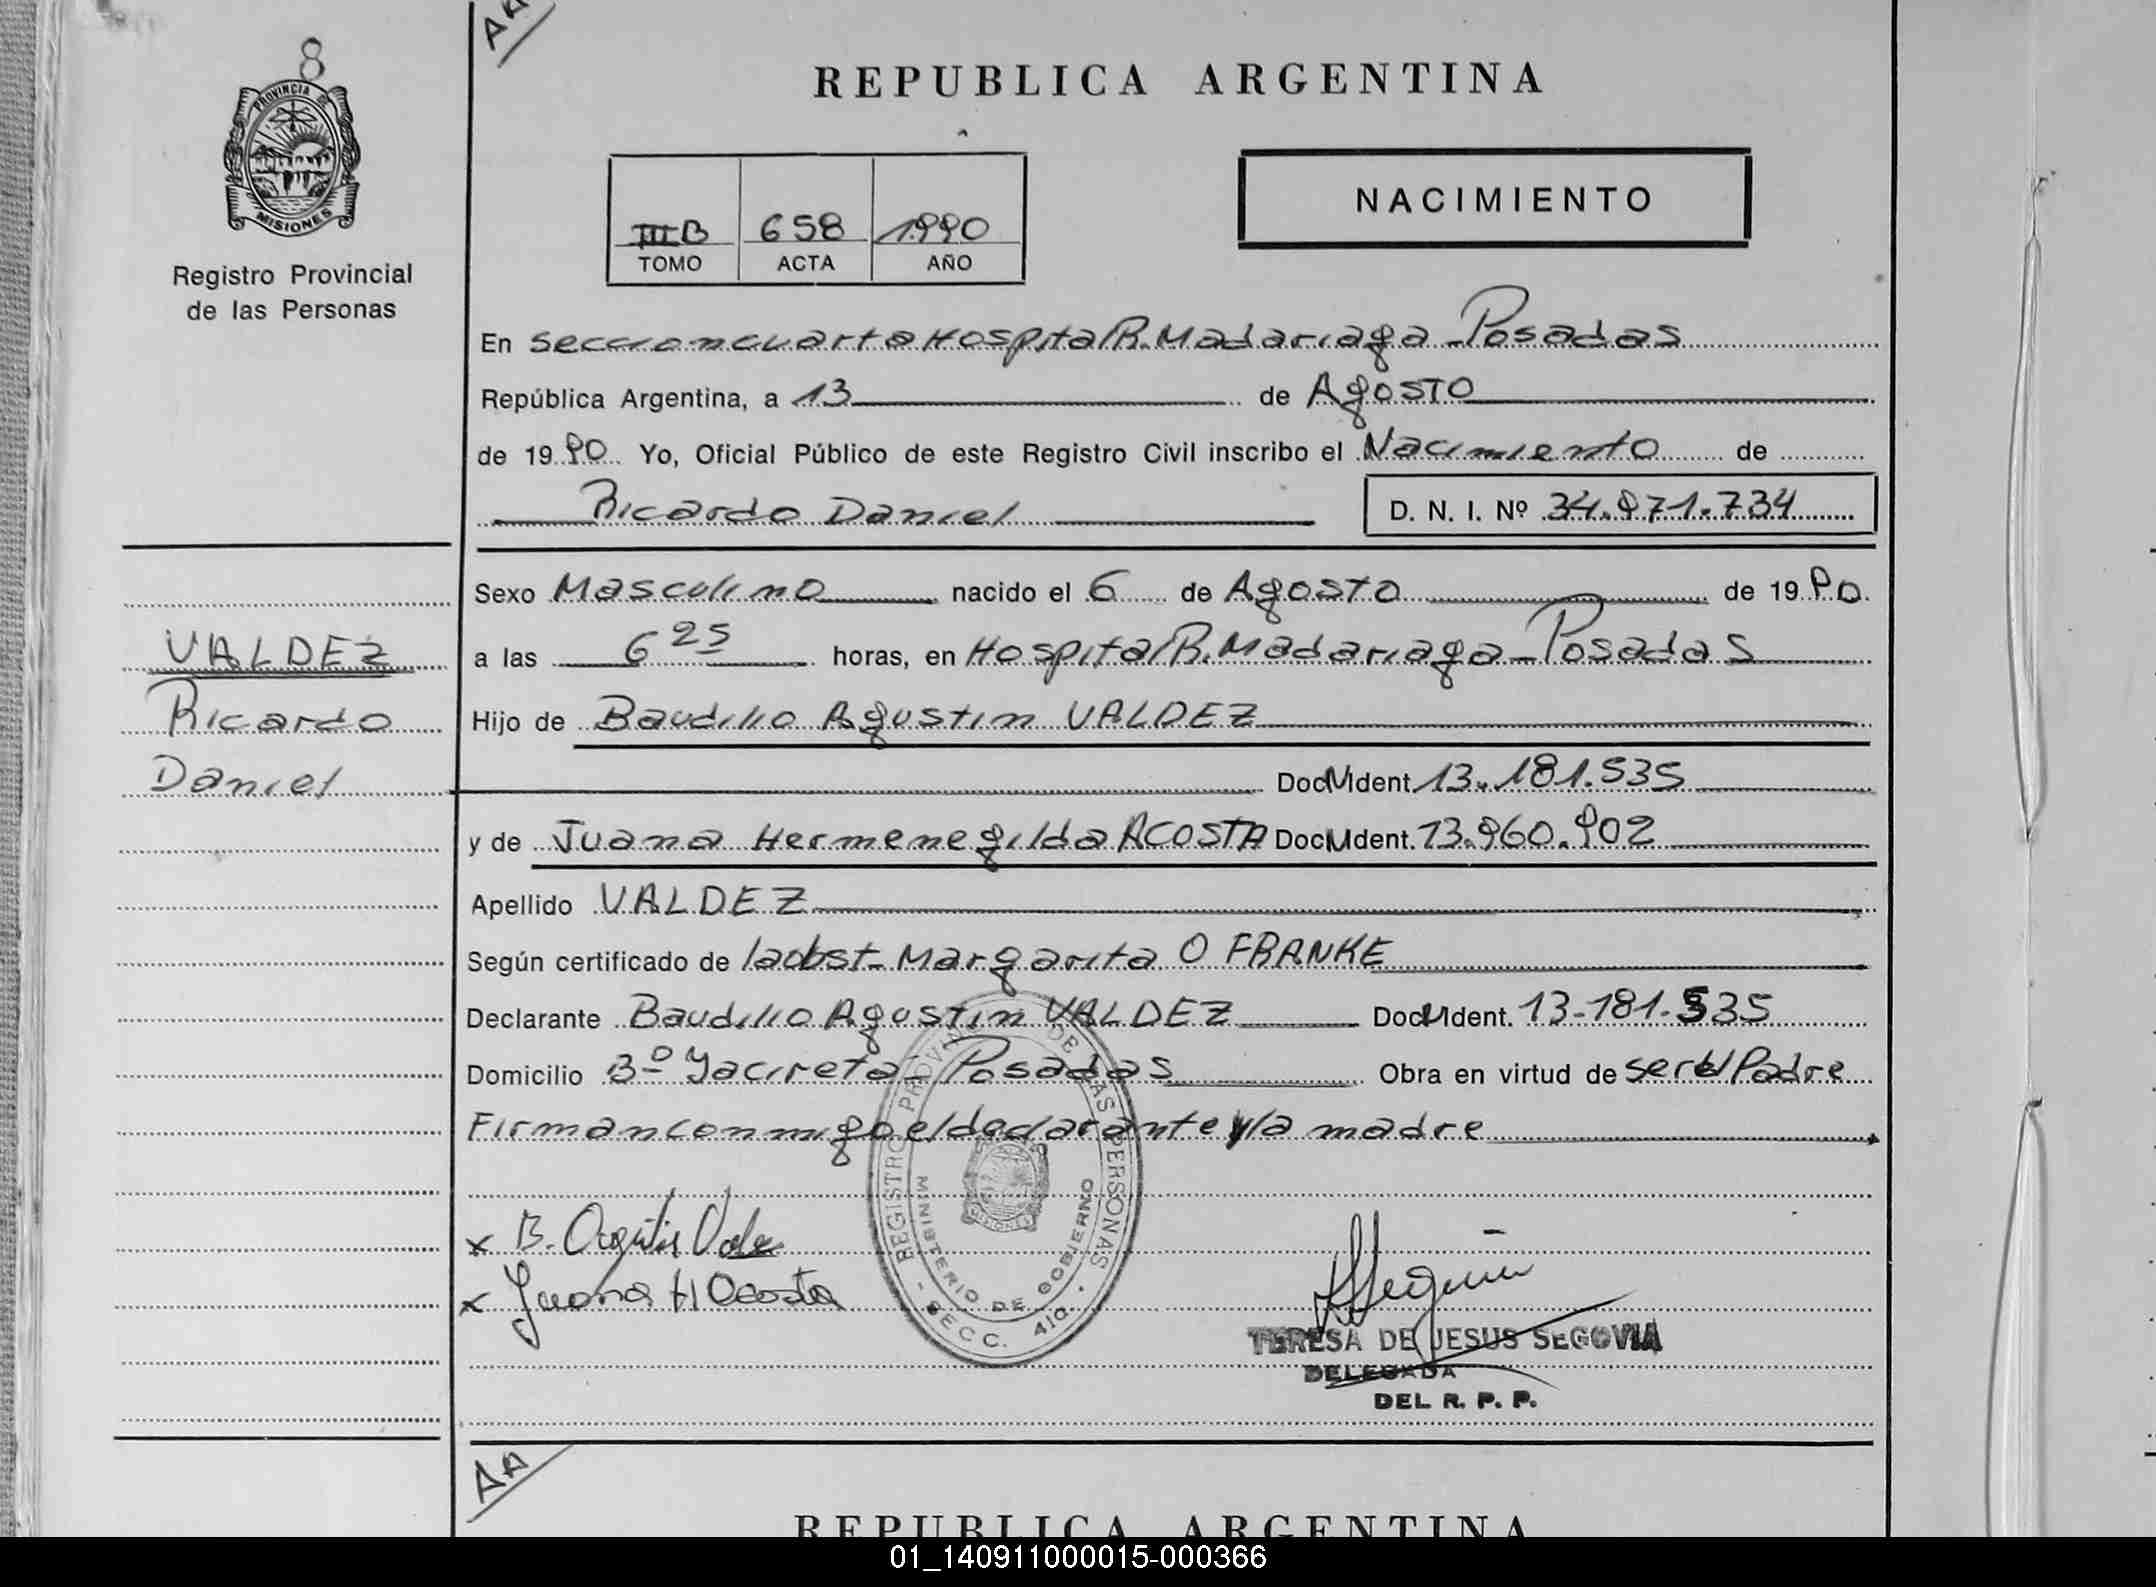 AA
8
PROVINCIA DE
MISIONES
Registro Provincial
de las Personas
REPUBLICA ARGENTINA
III B 658 1990
TOMO ACTA AÑO
NACIMIENTO
En Seccion cuarta Hospital R. Madariaga - Posadas
República Argentina, a 13 de Agosto
de 19 90 Yo, Oficial Público de este Registro Civil inscribo el Nacimiento de
Ricardo Daniel D. N. I. Nº 34.971.734
Sexo Masculino nacido el 6 de Agosto de 19 90
a las 6 25 horas, en Hospital R. Madariaga - Posadas
VALDEZ
Ricardo
Daniel
Hijo de Baudilio Agustin VALDEZ
Doc M Ident. 13.181.535
y de Juana Hermenegilda ACOSTA Doc M Ident. 13.960.902
Apellido VALDEZ
Según certificado de la obst- Margarita O FRANKE
Declarante Baudilio Agustin VALDEZ Doc M Ident. 13-181.535
Domicilio Bº Yacireta - Posadas Obra en virtud de ser el Padre
Firman conmigo el declarante y la madre
REGISTRO PROVINCIAL DE LAS PERSONAS
MINISTERIO DE GOBIERNO
MISIONES
SECC. 4ta.
x B. Agustin Valdez
x Juana H Acosta
TERESA DE JESUS SEGOVIA
DELEGADA
DEL R. P. P.
AA
REPUBLICA ARGENTINA
01_140911000015-000366